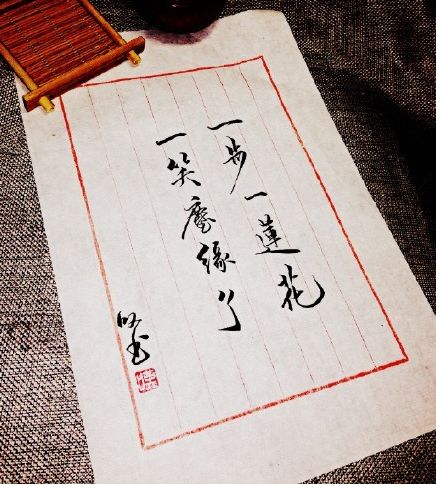 一步一蓮花
一笑塵緣了